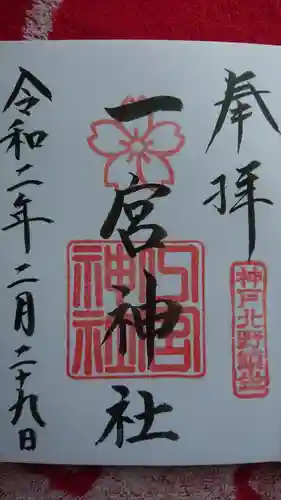 奉拝
神戸北野鎮座
一宮神社
一宮神社
令和二年二月二十九日